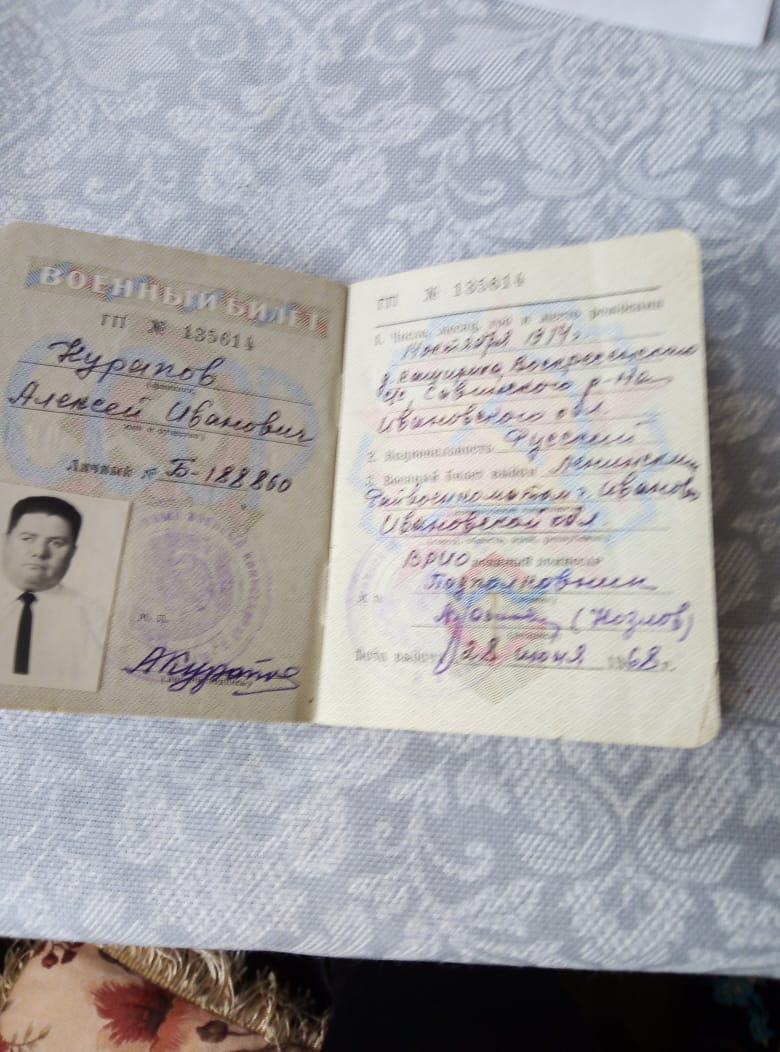 ВОЕННЫЙ БИЛЕТ
ГП № 135614
Курапов
(фамилия)
Алексей Иванович
(имя и отчество)
Личный № Б-188860
М. П.
АКурапов
ГП № 135614
1. Число, месяц, год и место рождения
14 октября 1914 г.
д.
Савинского р-на
Ивановской обл.
2. Национальность Русский
3. Военный билет выдан Ленинским
Райвоенкоматом г. Иваново
Ивановской обл.
ВРИО военный комиссар
Подполковник
(Козлов)
Дата выдачи 28 июня 1968 г.